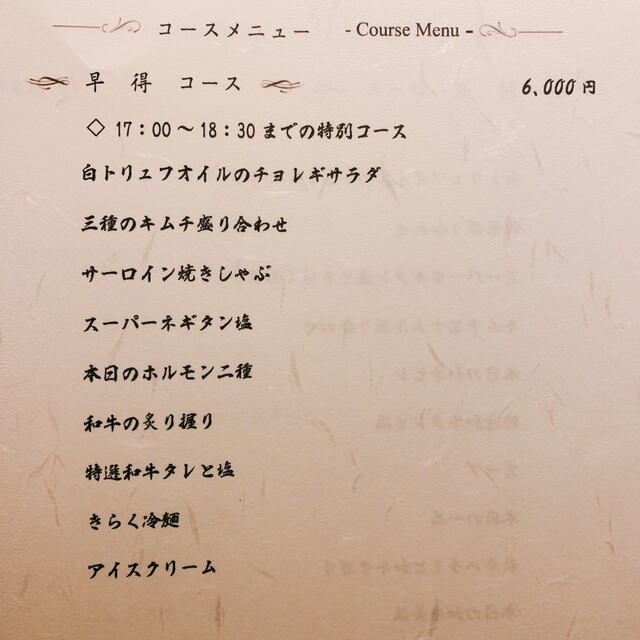 コースメニュー - Course Menu -
早得コース 6,000円
◇ 17：00～18：30までの特別コース
白トリュフオイルのチョレギサラダ
三種のキムチ盛り合わせ
サーロイン焼きしゃぶ
スーパーネギタン塩
本日のホルモン二種
和牛の炙り握り
特選和牛タレと塩
きらく冷麺
アイスクリーム